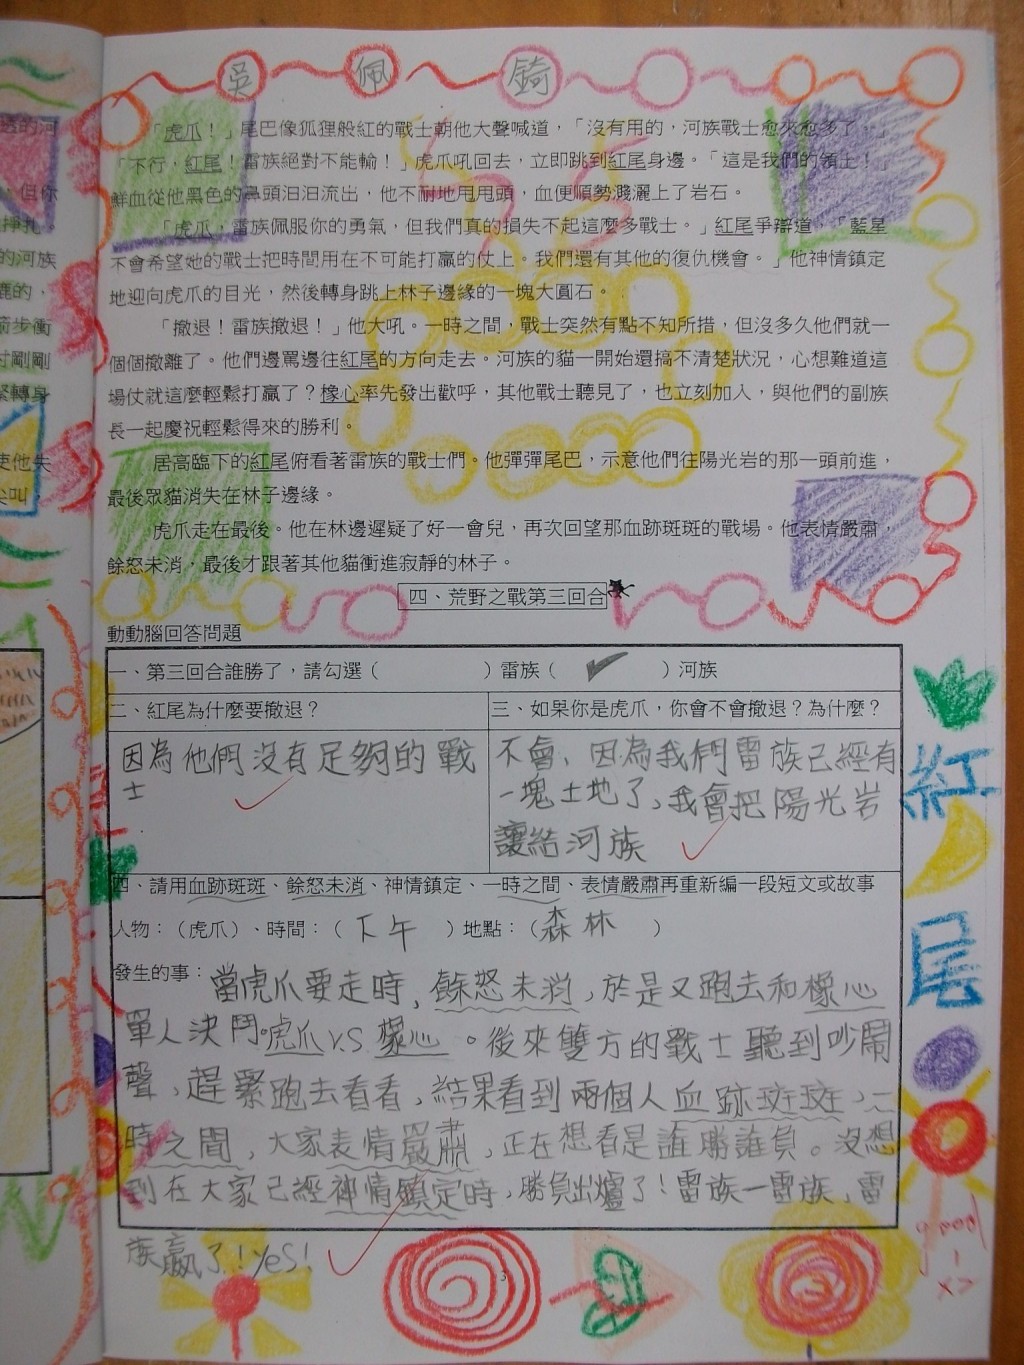 吳 佩 錡
「虎爪！」尾巴像狐狸般紅的戰士朝他大聲喊道，「沒有用的，河族戰士愈來愈多了。」
「不行，紅尾！雷族絕對不能輸！」虎爪吼回去，立即跳到紅尾身邊。「這是我們的領土！」
鮮血從他黑色的鼻頭汩汩流出，他不耐地甩甩頭，血便順勢濺灑上了岩石。
「虎爪，雷族佩服你的勇氣，但我們真的損失不起這麼多戰士。」紅尾爭辯道，「藍星
不會希望她的戰士把時間用在不可能打贏的仗上。我們還有其他的復仇機會。」他神情鎮定
地迎向虎爪的目光，然後轉身跳上林子邊緣的一塊大圓石。
「撤退！雷族撤退！」他大吼。一時之間，戰士突然有點不知所措，但沒多久他們就一
個個撤離了。他們邊罵邊往紅尾的方向走去。河族的貓一開始還搞不清楚狀況，心想難道這
場仗就這麼輕鬆打贏了？橡心率先發出歡呼，其他戰士聽見了，也立刻加入，與他們的副族
長一起慶祝輕鬆得來的勝利。
居高臨下的紅尾俯看著雷族的戰士們。他彈彈尾巴，示意他們往陽光岩的那一頭前進，
最後眾貓消失在林子邊緣。
虎爪走在最後。他在林邊遲疑了好一會兒，再次回望那血跡斑斑的戰場。他表情嚴肅，
餘怒未消，最後才跟著其他貓衝進寂靜的林子。
四、荒野之戰第三回合
動動腦回答問題
一、第三回合誰勝了，請勾選（ ）雷族（ ✓ ）河族
二、紅尾為什麼要撤退？
因為他們沒有足夠的戰
士
三、如果你是虎爪，你會不會撤退？為什麼？
不會，因為我們雷族已經有
一塊土地了，我會把陽光岩
讓給河族
四、請用血跡斑斑、餘怒未消、神情鎮定、一時之間、表情嚴肅再重新編一段短文或故事
人物：（虎爪）、時間：（下午）地點：（森林）
發生的事：當虎爪要走時，餘怒未消，於是又跑去和橡心
單人決鬥。虎爪V.S.橡心。後來雙方的戰士聽到吵鬧
聲，趕緊跑去看看，結果看到兩個人血跡斑斑，一
時之間，大家表情嚴肅，正在想看是誰勝誰負。沒想
到在大家已經神情鎮定時，勝負出爐了！雷族—雷族，雷
族贏了！yes！
紅
尾
good
3